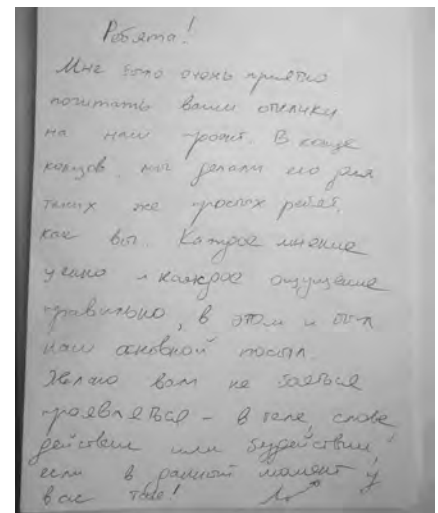 Ребята!
Мне было очень приятно
почитать ваши отклики
на наш проект. В конце
концов, мы делали его для
таких же простых ребят,
как вы. Каждое мнение
ценно и каждое ощущение
правильно, в этом и был
наш основной посыл.
Желаю вам не бояться
проявляться – в теле, слове,
действии или бездействии,
если в данный момент у
вас так!